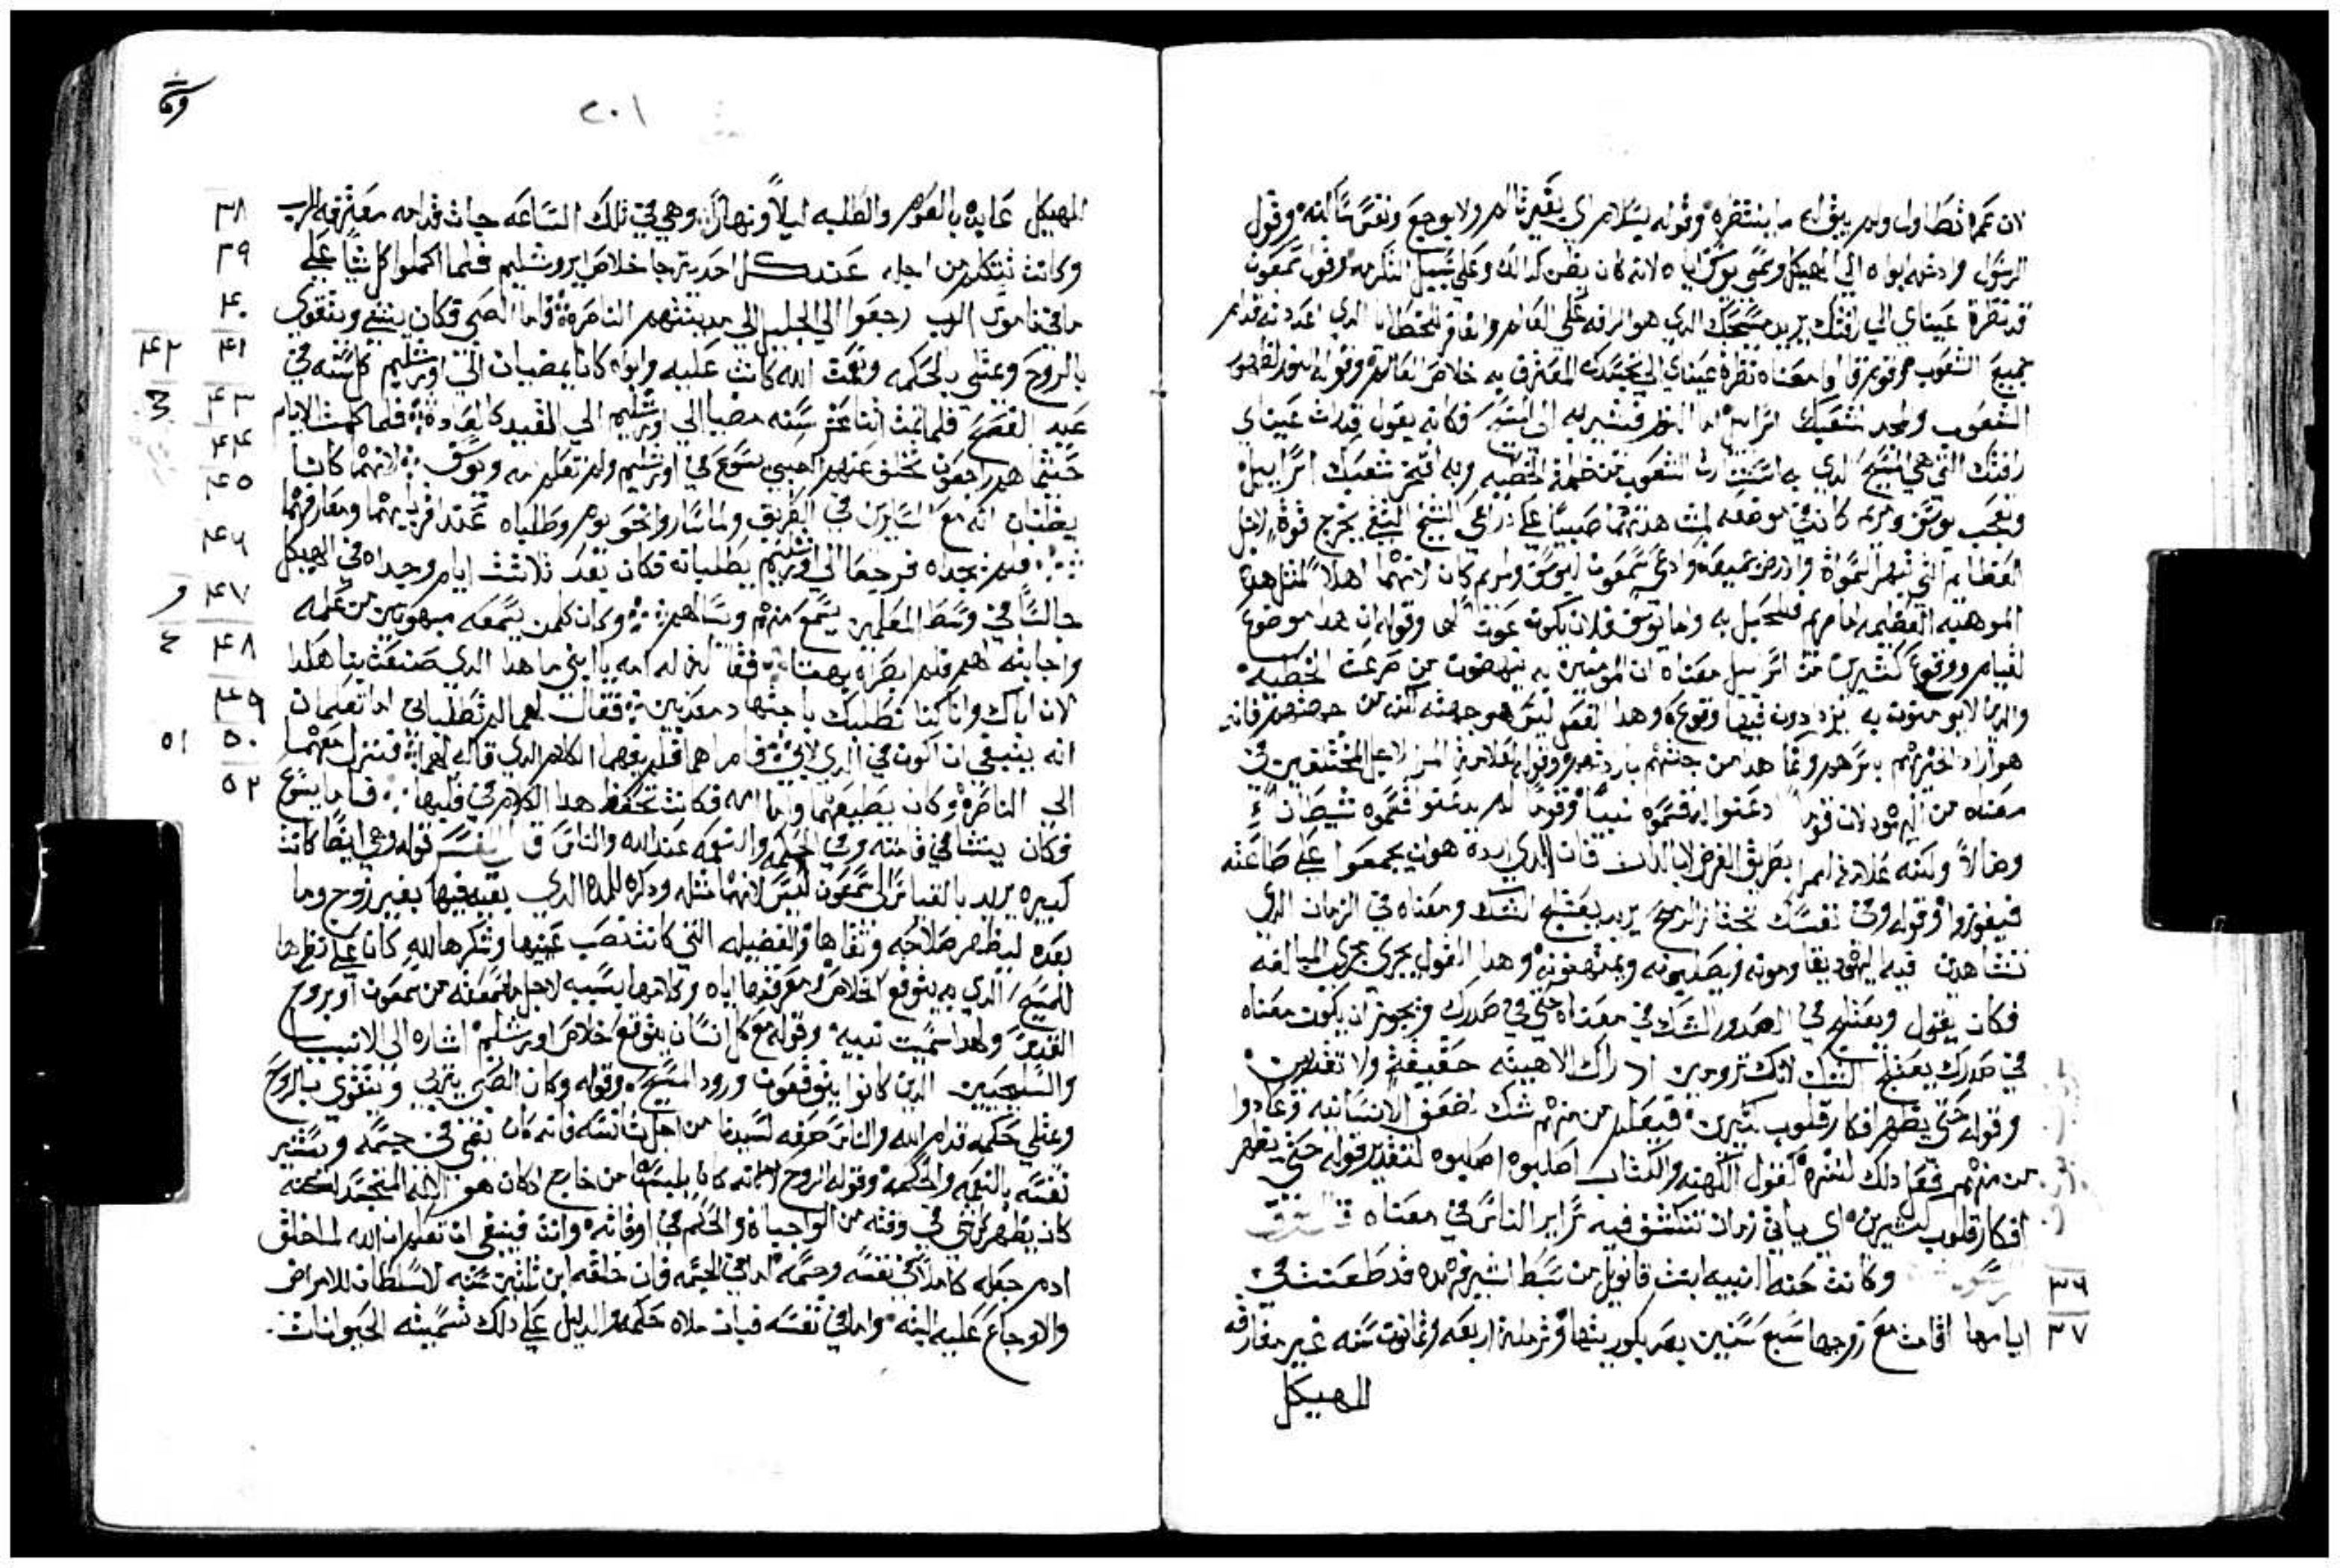 لان عمره تطاول ولم يبق له ما ينتظره وقوله بسلام اي بغير تالم ولا بوجع ونفس ساكنه وقول
الرسول وادخله ابواه الي الهيكل وسمى يوسف اباه لانه كان يظن كدلك وعلي سبيل التكرمه وقول سمعون
قد نظرة عيناي الي رافتك يريد مسيحك الدي هو الرافه على العالم والغافر للخطايا الدي اعددته قدام
جميع الشعوب معناه نظرة عيناي الي تجسدك المعترف به خلاص العالم وقوله النور لظهور
الشعوب ومجد لشعبك اسراييل اما النور فيشير به الي المسيح فكانه يقول قد رات عيناي
رافتك التي هي المسيح الدي به استنارت الشعوب من ظلمة الخطيه وبه افتخر شعبك اسراييل
وتعجب يوسف ومريم كانت في موضعه لمشاهدتهما صبيا علي دراعي الشيخ النبي يخرج قوة لاجل
العظايم التي تبهر السماوة والارض جميعها وادعى سمعون ليوسف ومريم كان لانهما اهلا لمثل هده
الموهبه العظيمه اما مريم فللحبل به واما يوسف فلان يكون عونا لها وقوله ان هدا موضوع
لقيام ووقوع كثيرين من اسراييل معناه ان المومنين به ينهضون من صرعت الخطيه
والدين لا يومنون به يزدادون فيها وقوع وهدا الفعل ليس هو من جهته لكن من جهتهم فانه
هو اراد خيرهم باسرهم وانما هدا من جهتهم بارادتهم وقوله لعلامة المرا لاجل المختلفين في
معناه من اليهود لان قوما ادعنوا له فسموه نبيا وقوما لم يدعنوا فسموه شيطان
وضالا ولكنه علامة المرا بطريق الغرض لا بالدات فان الدي اراده هو ان يجمعوا علي طاعته
فيفوزوا وقوله وفي نفسك تجتاز الرمح يريد يعتلج الشك ومعناه في الزمان الدي
تشاهدين فيه اليهود يقاومونه ويصلبونه ويمتهنونه وهدا القول يجري مجري المبالغه
فكان يقول ويعتلج في الصدور الشك في معناه حتي في صدرك ويجوز ان يكون معناه
في صدرك يعتلج الشك لانك ترومين ادراك الاهيته حقيقة ولا تقدرين
وقوله حتي يظهر افكار قلوب كثيرين فيعلم من منهم شك لضعف الانسانيه وعادوا
من منهم فعل دلك لشره كقول الكهنه والكتاب اصلبوه اصلبوه لتقدير قوله حتي يظهر
افكار قلوب كثيرين اي ياتي زمان تنكشف فيه سراير الناس في معناه
٣٦ وكانت حنه النبيه ابنت فانويل من سبط اشير هده قد طعنت في
٣٧ ايامها اقامت مع زوجها سبع سنين بعد بكوريتها وترملة اربعه وثمانون سنه غير مفارقه
الهيكل
٢٠١
٣٨ الهيكل عابده بالصوم والطلبه ليلا ونهارا وهي في تلك الساعه جات قدامه معترفه للرب
٣٩ وكانت تتكلم من اجله عند كل احد يترجا خلاص ايروشليم فلما اكملوا كل شيا علي
٤٠ ما في ناموس الرب رجعوا الي الجليل الي مدينتهم الناصرة واما الصبي فكان ينشي ويتقوي
٤١ ٤٢ بالروح ويمتلي بالحكمه ونعمت الله كانت عليه وابواه كانا يمضيان الي اورشليم كل سنه في
٤٣ عيد الفصح فلما تمت اثنا عشر سنه مضيا الي اورشليم الي العيد كالعادة فلما كملت الايام
٤٤ حيثما هم راجعون تخلف عنهم الصبي يسوع في اورشليم ولم تعلم امه ويوسف لانهما كانا
٤٥ يظنان انه مع السايرين في الطريق ولما ساروا نحو يوم وطلباه عند اقربايهما ومعارفهما
٤٦ فلم يجداه فرجعا الي اورشليم يطلبانه فكان بعد ثلاثت ايام وجداه في الهيكل
٤٧ جالسا في وسط المعلمين يسمع منهم ويسالهم وكان كلمن يسمعه مبهوتين من علمه
٤٨ واجابته لهم فلما ابصراه بهتا فقالت له امه يا ابني ما هدا الدي صنعت بنا هكدا
٤٩ لان اباك وانا كنا نطلبك باجتهاد معدبين فقال لهما لم تطلباني اما تعلمان
٥٠ ٥١ انه ينبغي ان اكون في الدي لابي فاما هما فلم يفهما الكلام الدي قاله لهما فنزل معهما
٥٢ الي الناصره وكان يطيعهما واما امه فكانت تحفظ هدا الكلام في قلبها فاما يسوع
فكان ينشا في قامته وفي الحكمه والنعمه عند الله والناس قال المفسر قوله وهي ايضا كانت
كبيره يريد بالقياس الي سمعون ليس لانهما مثله ودكره للمده الدي بقيه فيها بغير زوج وما
بعده ليظهر صلاحه وتقاها والفضيله التي كانت نصب عينها وشكرها لله كان علي نظرها
للمسيح الدي به يتوقع الخلاص ومعرفتها اياه وكلامها بسببه لاجل ما سمعته من سمعون او بروح
القدس ولهدا سميت نبيه وقوله مع كل انسان يتوقع خلاص اورشليم اشاره الي الانبيا
والسليحيين الدين كانوا يتوقعون ورود المسيح وقوله وكان الصبي يتربي ويتقوي بالروح
ويمتلي حكمه قدام الله والناس صرفه لسيدنا من اجل تانسه فانه كان ينمي في جسمه ويستنير
نفسه بالنعمه والحكمه وقوله الروح لا انه كان يلبسها من خارج ادكان هو الاله المتجسد لكنه
كان يظهر كل شي في وقته من الواجباة والحكم في اوقاته وانت فينبغي ان تعلم ان الله لما خلق
ادم جعله كاملا في نفسه وجسمه اما في الجسم فان خلقه ابن ثلثين سنه لا سلطان للامراض
والاوجاع عليه البته واما في نفسه فبان ملاه حكمه والدليل علي دلك تسميته الحيوانات